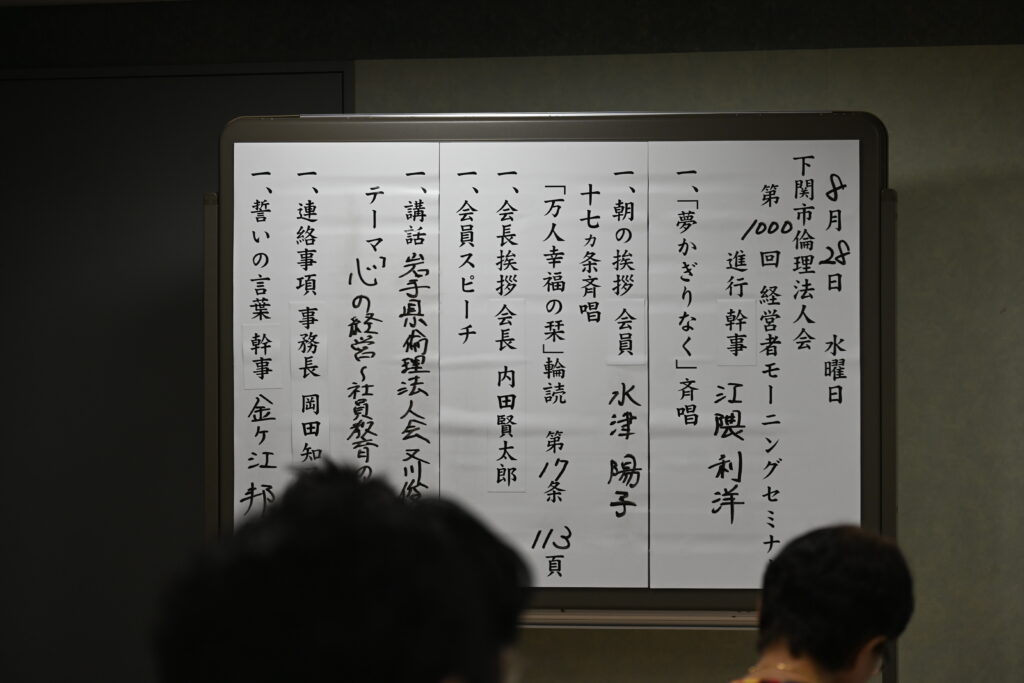 8月28日 水曜日
下関市倫理法人会
第1000回 経営者モーニングセミナ
進行 幹事 江隈 利洋
一、「夢かぎりなく」斉唱
一、朝の挨拶 会員 水津 陽子
十七ヵ条斉唱
「万人幸福の栞」輪読 第17条 113頁
一、会長挨拶 会長 内田賢太郎
一、会員スピーチ
一、講話 岩手県倫理法人会 及川俊
テーマ「心の経営~社員教育の
一、連絡事項 事務長 岡田知
一、誓いの言葉 幹事 金ヶ江 邦